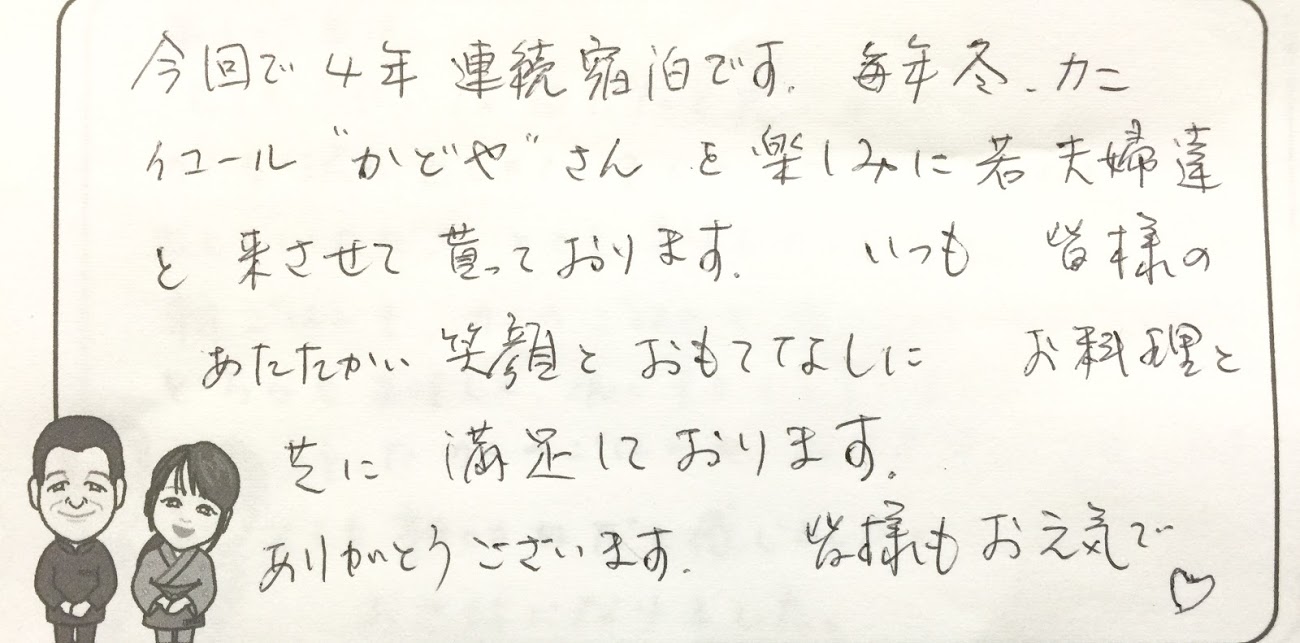 今回で4年連続宿泊です。毎年冬、カニ
イコール"かどや"さんを楽しみに若夫婦達
と来させて貰っております。 いつも 皆様の
あたたかい笑顔とおもててなしに お料理と
共に 満足しております。
ありがとうございます。 皆様もお元気で♡